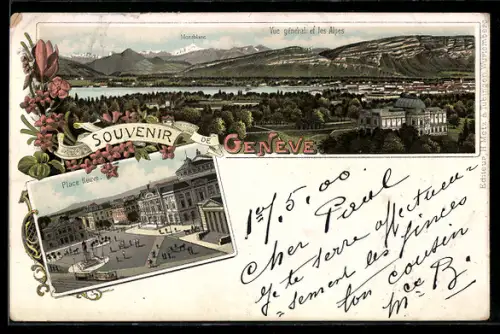 Montblanc
Vue générale et les Alpes
SOUVENIR
DE
GENÈVE
Place Neuve
1er/5.00
Cher Paul
Je te serre affectueu-
sement les pinces
ton cousin
Mce B.
Editeur, H. Metz à Tubingen, Wurtembg.